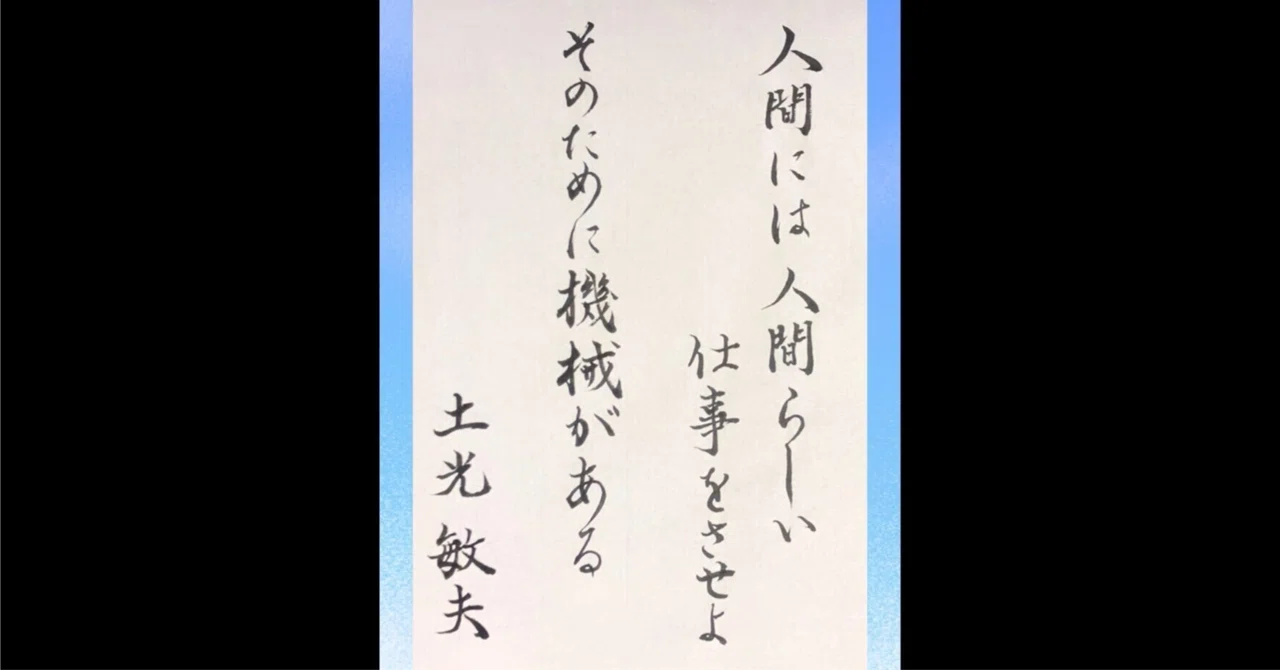 人間には 人間らしい
仕事をさせよ
そのために機械がある
土光 敏夫